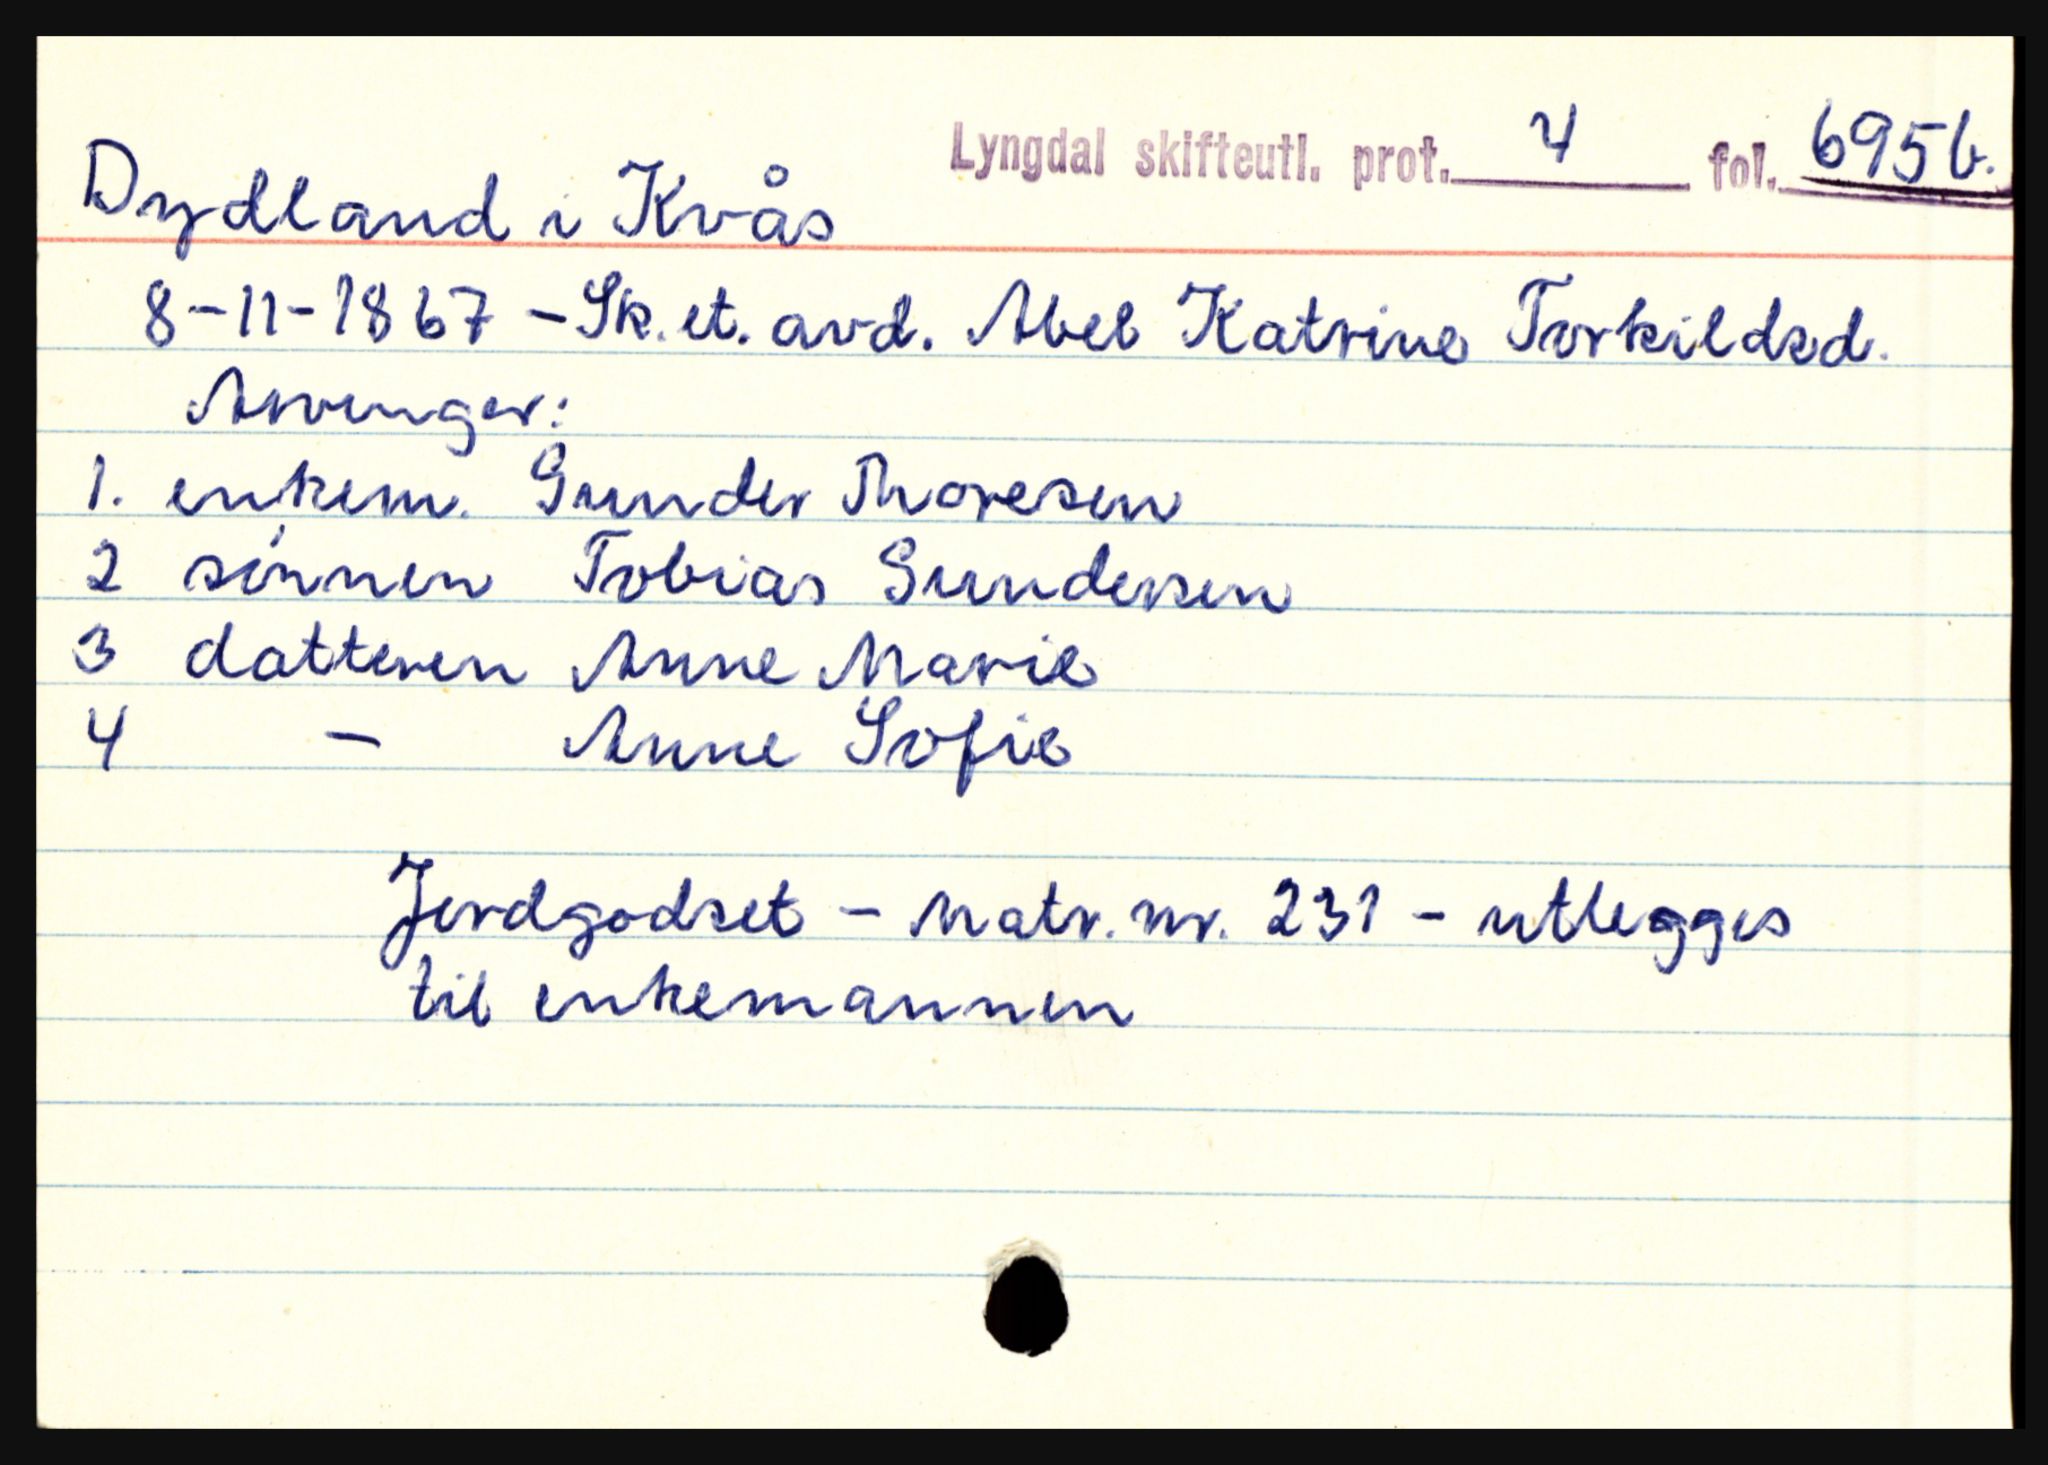 Lyngdal skifteutl. prot. 4 fol. 695b.
Dydland i Kvås
8-11-1867 - Sk. et. avd. Abel Katrine Torkildsd.
Arvinger:
1. enkem. Gunder Thoresen
2 sønnen Tobias Gundersen
3 datteren Anne Marie
4 - Anne Sofie
Jordgodset - Matr. nr. 231 - utlegges
til enkemannen